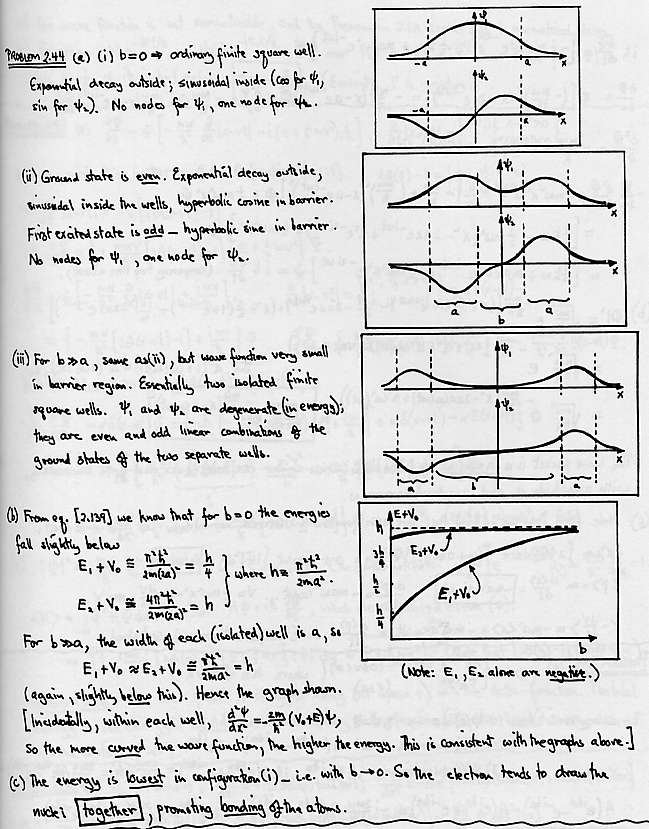 PROBLEM 2.44 (a) (i) b=0 ⇒ ordinary finite square well.
Exponential decay outside; sinusoidal inside (cos for ψ₁,
sin for ψ₂). No nodes for ψ₁, one node for ψ₂.
ψ₁
-a a x
ψ₂
-a a x
(ii) Ground state is even. Exponential decay outside,
sinusoidal inside the wells, hyperbolic cosine in barrier.
First excited state is odd — hyperbolic sine in barrier.
No nodes for ψ₁, one node for ψ₂.
ψ₁
x
ψ₂
x
a b a
(iii) For b≫a, same as (ii), but wave function very small
in barrier region. Essentially two isolated finite
square wells. ψ₁ and ψ₂ are degenerate (in energy);
they are even and odd linear combinations of the
ground states of the two separate wells.
ψ₁
x
ψ₂
x
a b a
(b) From eq. [2.139] we know that for b=0 the energies
fall slightly below
E₁ + V₀ ≅ π²ħ²/2m(2a)² = h/4
E₂ + V₀ ≅ 4π²ħ²/2m(2a)² = h
} where h ≡ π²ħ²/2ma².
For b≫a, the width of each (isolated) well is a, so
E₁ + V₀ ≈ E₂ + V₀ ≅ π²ħ²/2ma² = h
(again, slightly below this). Hence the graph shown.
[Incidentally, within each well, d²ψ/dx² = -2m/ħ² (V₀+E)ψ,
so the more curved the wave function, the higher the energy. This is consistent with the graphs above.]
E+V₀
h
3h/4
h/2
h/4
E₂+V₀
E₁+V₀
b
(Note: E₁, E₂ alone are negative.)
(c) The energy is lowest in configuration (i) — i.e. with b→0. So the electron tends to draw the
nuclei together, promoting bonding of the atoms.